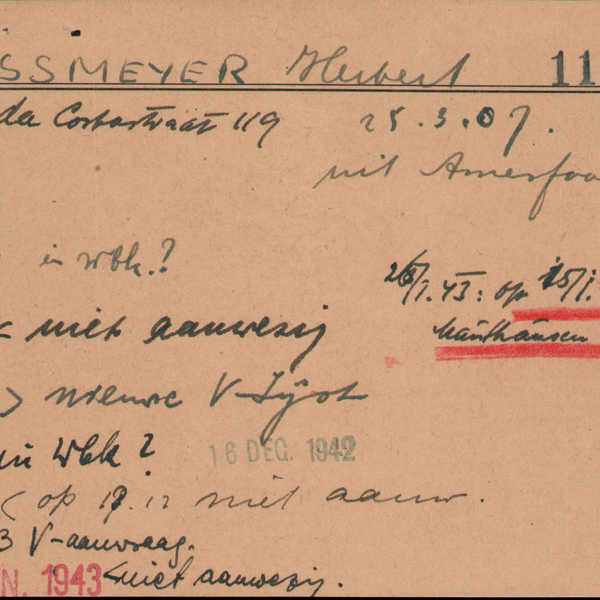 SSMEYER Herbert 11
da Costastraat 119 25.3.07.
uit Amersfoo
in wbk.?
26/1.43: op 15/1.
Mauthausen
< niet aanwezig
> nieuwe V-Lijst
in Wbk?
16 DEC. 1942
< op 17.12 niet aanw.
3 V-aanvraag.
N. 1943 < niet aanwezig.